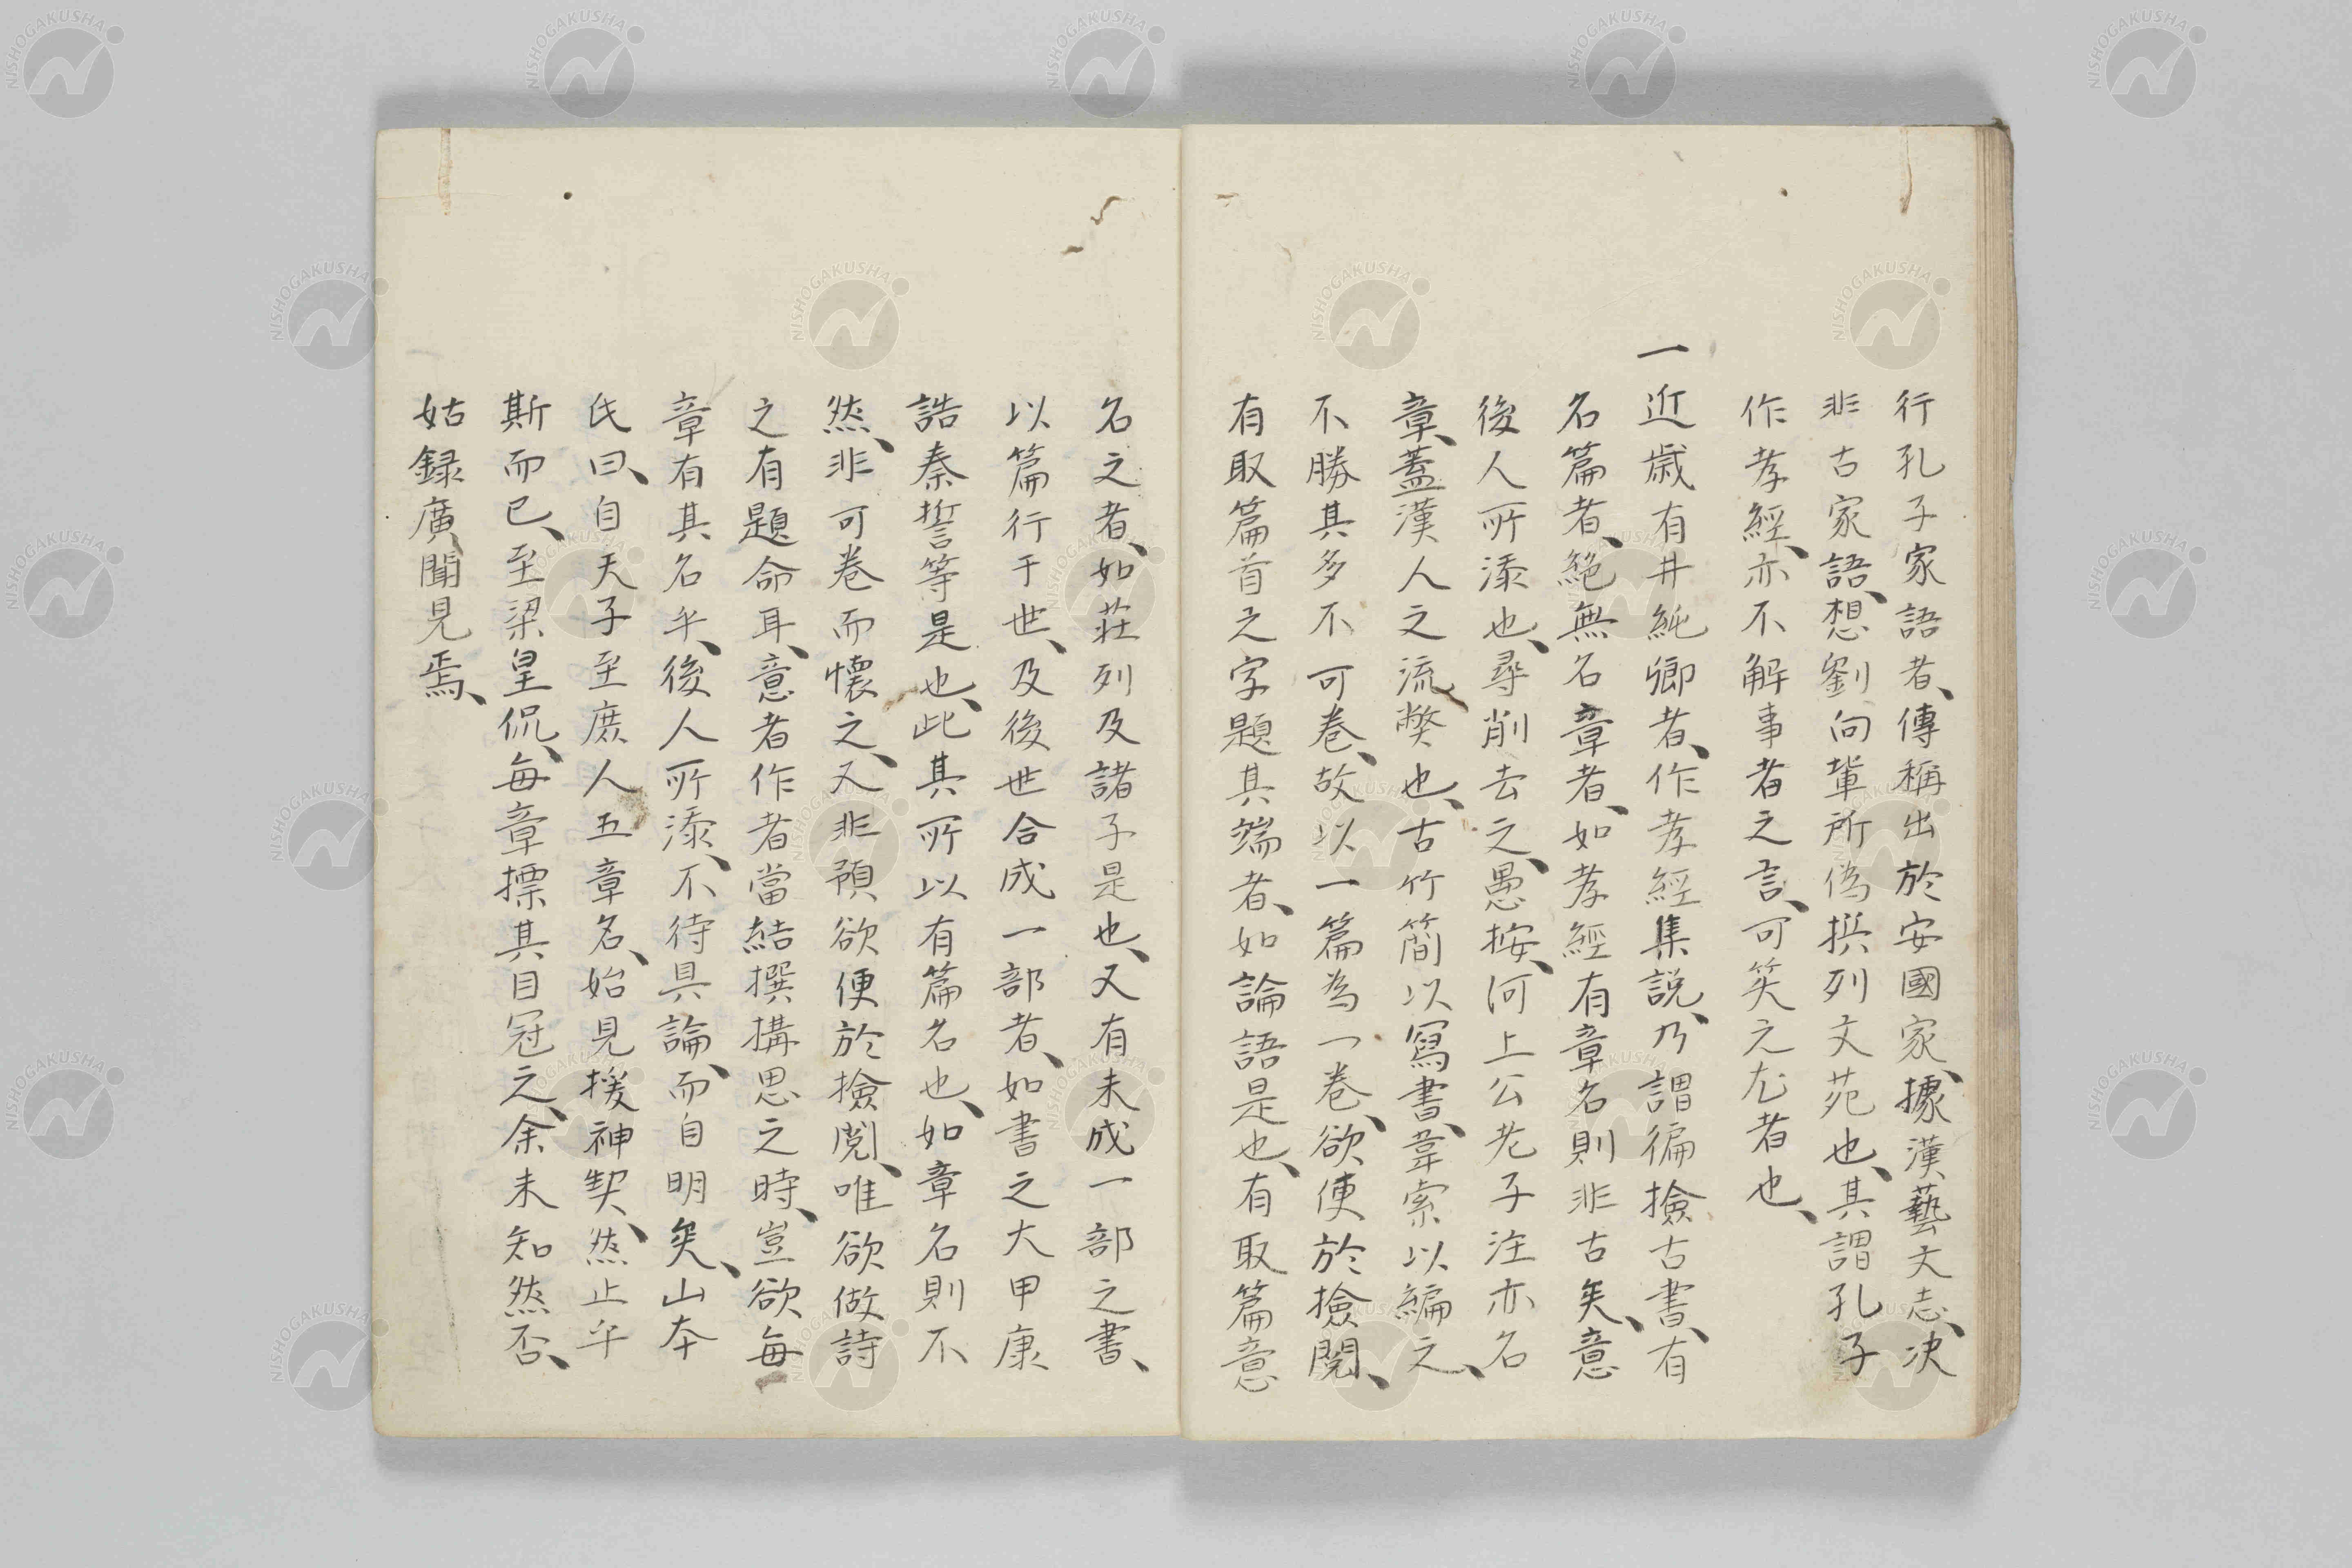 行孔子家語者、傳稱出於安國家、據漢藝文志、决
非古家語、想劉向輩所僞撰列文苑也、其謂孔子
作孝經、亦不解事者之言、可笑之尤者也、
一近歲有井純卿者、作孝經集説、乃謂徧撿古書、有
名篇者、絕無名章者、如孝經有章名則非古矣、意
後人所添也、尋削去之、愚按、何上公老子注亦名
章、蓋漢人之流弊也、古竹簡以寫書、韋索以編之、
不勝其多不可卷、故以一篇為一卷、欲便於撿閱、
有取篇首之字題其端者、如論語是也、有取篇意
名之者、如莊列及諸子是也、又有未成一部之書、
以篇行于世、及後世合成一部者、如書之大甲康
誥秦誓等是也、此其所以有篇名也、如章名則不
然、非可卷而懷之、又非預欲便於撿閱、唯欲做詩
之有題命耳、意者作者當結撰搆思之時、豈欲每
章有其名乎、後人所添、不待具論、而自明矣、山本
氏曰、自天子至庶人五章名、始見援神契、然止乎
斯而已、至梁皇侃、每章標其目冠之、余未知然否、
姑録廣聞見焉、
NISHOGAKUSHA